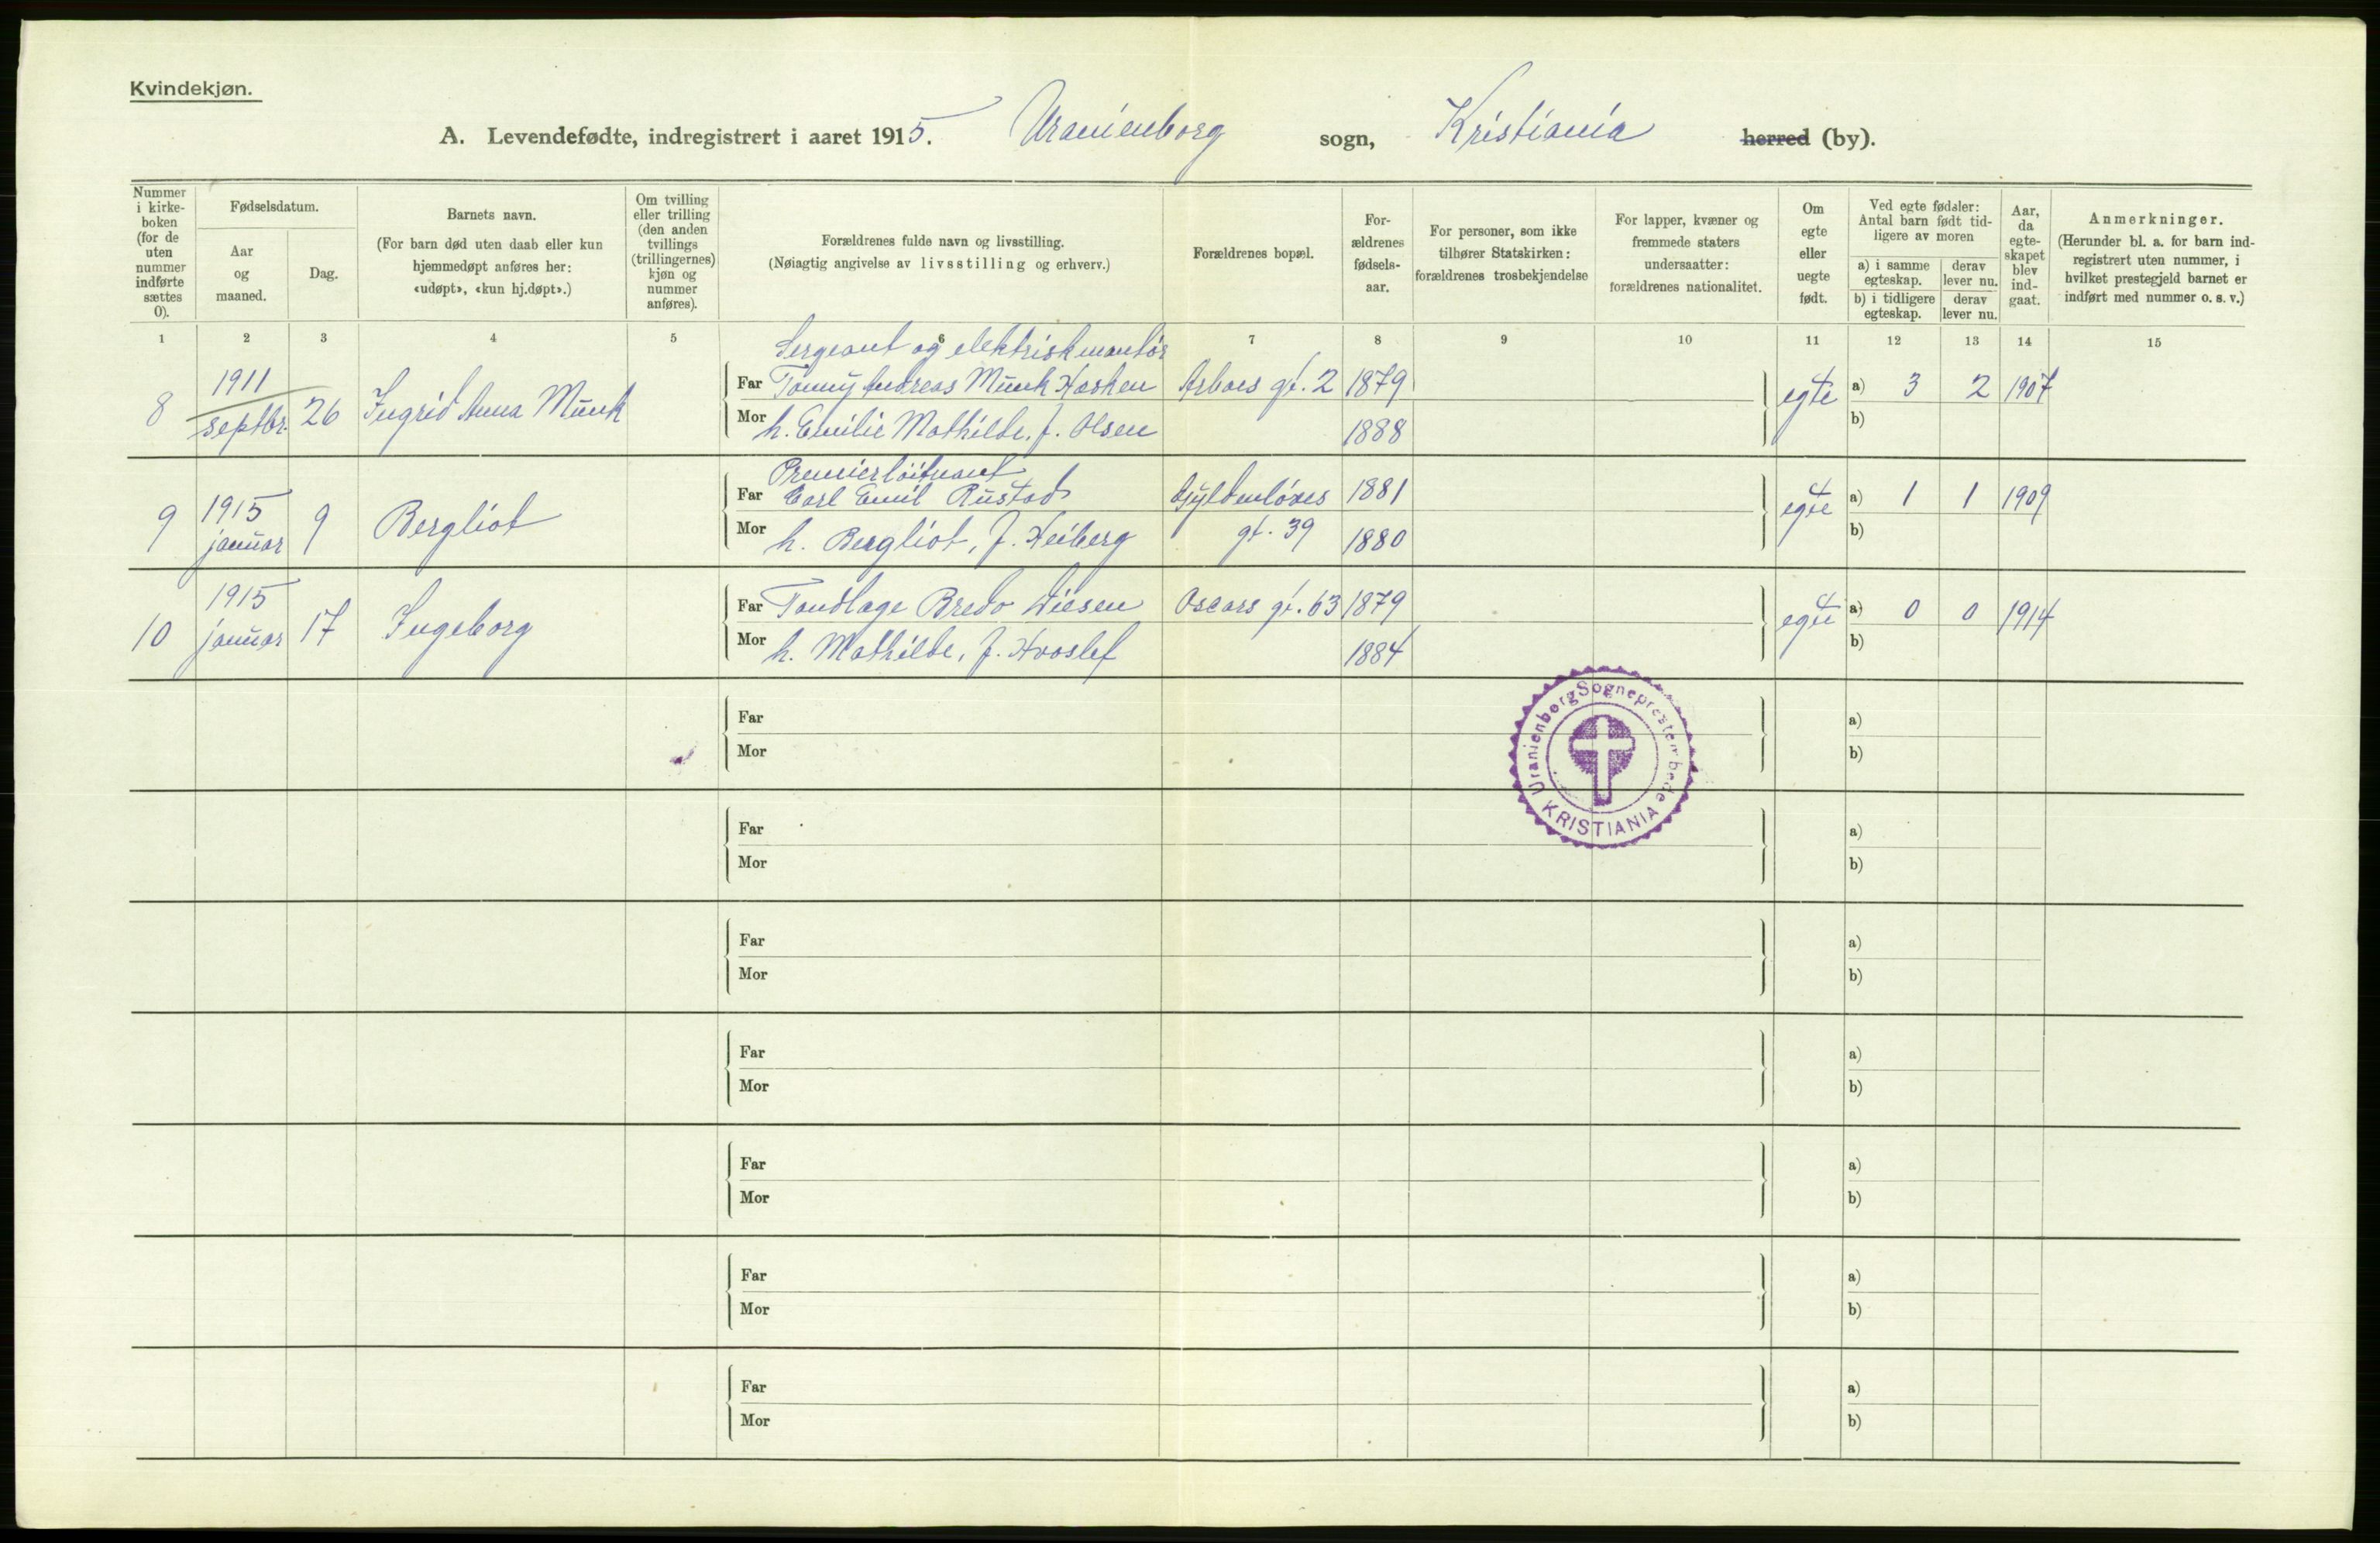 Kvindekjøn.
A. Levendefødte, indregistrert i aaret 1915. Uranienborg sogn, Kristiania herred (by).
Nummer i kirke- boken (for de uten nummer indførte sættes 0).
Fødselsdatum.
Aar og maaned.
Dag.
Barnets navn.
(For barn død uten daab eller kun hjemmedøpt anføres her: «udøpt», «kun hj.døpt».)
Om tvilling eller trilling (den anden tvillings (trillingernes) kjøn og nummer anføres).
Forældrenes fulde navn og livsstilling.
(Nøiagtig angivelse av livsstilling og erhverv.)
Forældrenes bopæl.
For- ældrenes fødsels- aar.
For personer, som ikke tilhører Statskirken: forældrenes trosbekjendelse
For lapper, kvæner og fremmede staters undersaatter: forældrenes nationalitet.
Om egte eller uegte født.
Ved egte fødsler: Antal barn født tid- ligere av moren
a) i samme egteskap.
derav lever nu.
b) i tidligere egteskap.
derav lever nu.
Aar, da egte- skapet blev ind- gaat.
Anmerkninger.
(Herunder bl. a. for barn ind- registrert uten nummer, i hvilket prestegjeld barnet er indført med nummer o. s. v.)
1 2 3 4 5 6 7 8 9 10 11 12 13 14 15
Sergeant og elektrisk montör
8 1911 septbr. 26 Ingrid Anna Munk Far Andreas Munk Arboes gt. 2 1879 egte a) 3 2 1907
Mor h. Emilie Mathilde, f. Olsen 1888 b)
Premierlöitnant
9 1915 januar 9 Bergliot Far Carl Emil Rustad Gyldenlöves 1881 egte a) 1 1 1909
Mor h. Bergliot, f. Heiberg gt. 39 1880 b)
10 1915 januar 17 Ingeborg Far Tandlæge Bredo Diesen Oscars gt. 63 1879 egte a) 0 0 1914
Mor h. Mathilde, f. Hvoslef 1884 b)
Uranienborg Sogneprestembede
KRISTIANIA
Far a)
Mor b)
Far a)
Mor b)
Far a)
Mor b)
Far a)
Mor b)
Far a)
Mor b)
Far a)
Mor b)
Far a)
Mor b)